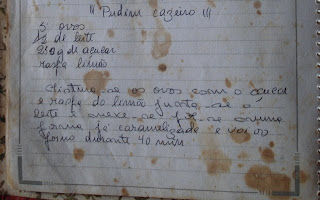 " Pudim cazeiro "
5 ovos
1/2 de leite
250g de açucar
raspa limão
Mistura-se os ovos com o açucar
e raspa do limão junta-se o
leite e mexe-se
forma já caramelizada e vai ao
forno durante 40 min